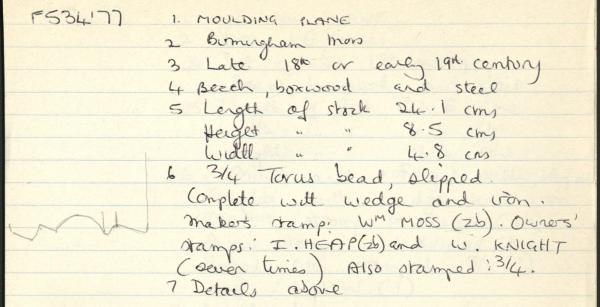 F534'77
1. MOULDING PLANE
2 Birmingham Moss
3 Late 18th or early 19th century
4 Beech, boxwood and steel
5 Length of stock 24.1 cms
Height " " 8.5 cms
Width " " 4.8 cms
6 3/4 Torus bead, slipped
Complete with wedge and iron.
Makers stamp: WM MOSS (2b). Owners'
stamps: I. HEAP (2b) and W. KNIGHT
(seven times) Also stamped: 3/4.
7 Details above